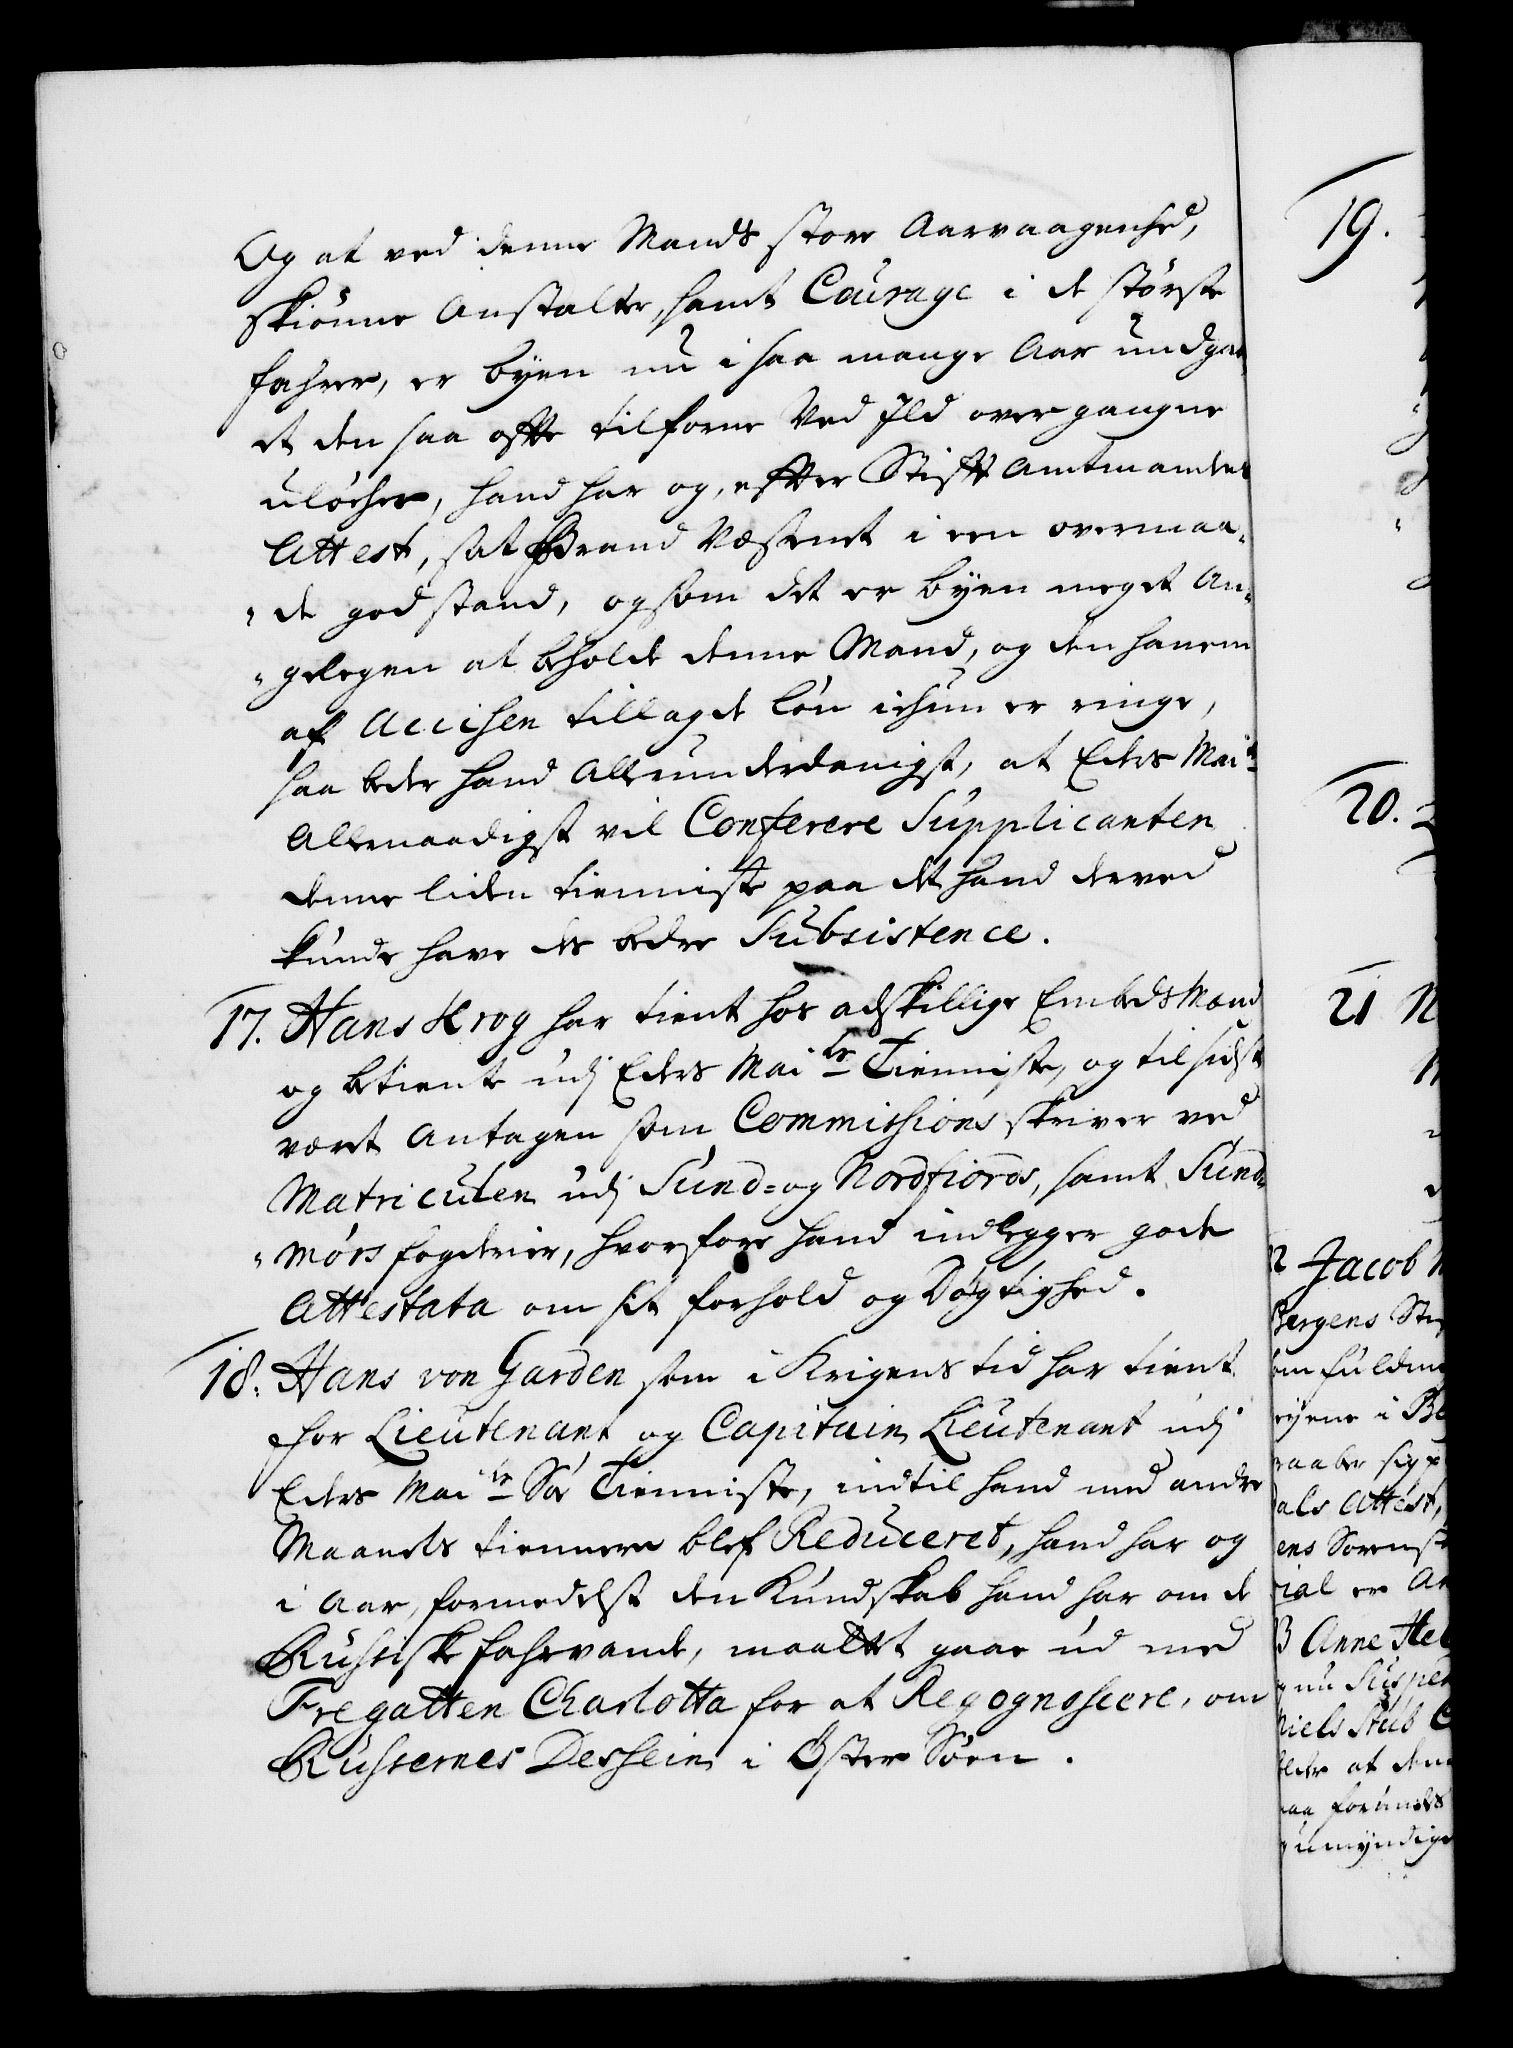 Og at ved denne Mands store Aarvaagenhed,
skiönne Anstalter, samt Courage i de störste
fahrer, er byen nu i saa mange Aar undgaa
et den saa offte tilforne Ved Ild over gangne
ulöcher, hand har og, effter Stifft Amtmandens
Attest, sat Brand Væsenet i een overmaa-
de god stand, og som det er byen meget An-
gelegen at beholde denne Mand, og den hanem
af Accisen tillagde lön ichun er ringe,
saa beder hand Allerunderdanigst, at Eders Mait
Allernaadigst vil Conferere Supplicanten
denne liden tienniste paa det hand derved
kunde have des bedre Subsistence.
17. Hans Krog har tient hos adskillige Embeds Mænd
og betiente udj Eders Maits Tienniste, og til sidst
været Antagen som Commissions skriver ved
Matriculen udj Sund- og Nordfiords, samt Sund-
mörs fogderier, hvorfore hand indlegger gode
Attestata om sit forhold og Dögtighed.
18. Hans von Garden som i Krigens tid har tient
for Lieutenant og Capitain Lieutenant udj
Eders Maits Söe Tienniste, indtil hand med andre
Maanets tiennere blef Reduceret, hand har og
i Aar, formedelst den Kundskab hand har om de
Russiske fahrvande, maattet gaae ud med
Fregatten Charlotta for at Regognoscere, om
Russernes Dessein i Öster Söen.
19.
20.
21
Jacob
Bergens
Attest,
Anne
Niels Stub
at